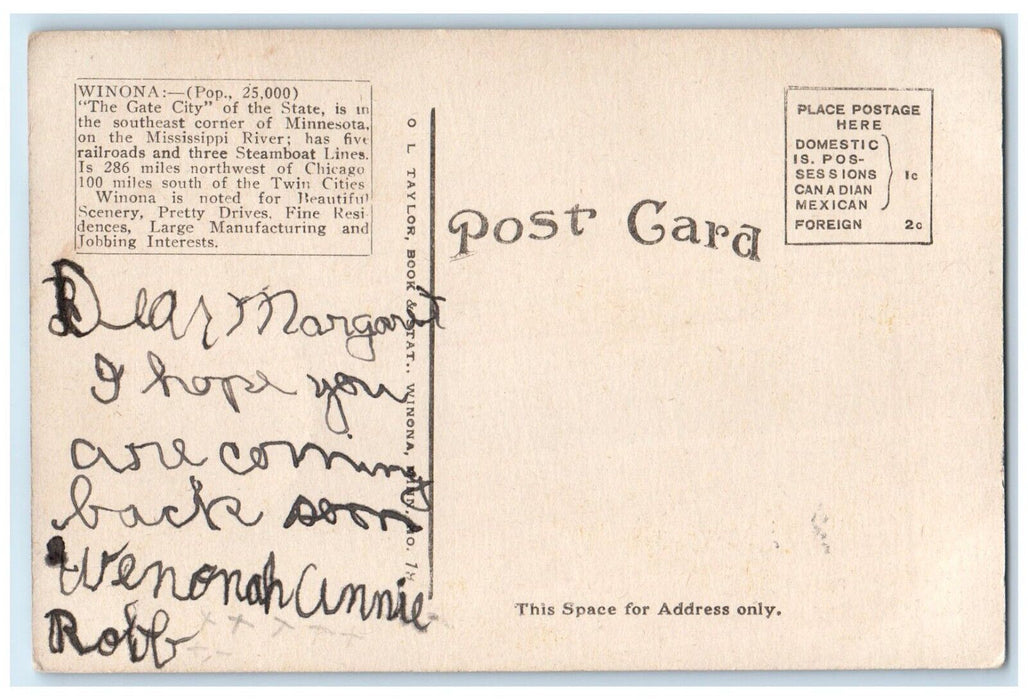 WINONA:—(Pop., 25,000)
"The Gate City" of the State, is in
the southeast corner of Minnesota,
on the Mississippi River; has five
railroads and three Steamboat Lines.
Is 286 miles northwest of Chicago
100 miles south of the Twin Cities
Winona is noted for Beautiful
Scenery, Pretty Drives. Fine Resi
dences, Large Manufacturing and
Jobbing Interests.
Dear Margaret
I hope you
are coming
back soon
Wenonah Annie
Robb
O L TAYLOR, BOOK & STAT., WINONA, MINN. NO.
Post Card
PLACE POSTAGE
HERE
DOMESTIC
IS. POS-
SESSIONS 1c
CANADIAN
MEXICAN
FOREIGN 2c
This Space for Address only.